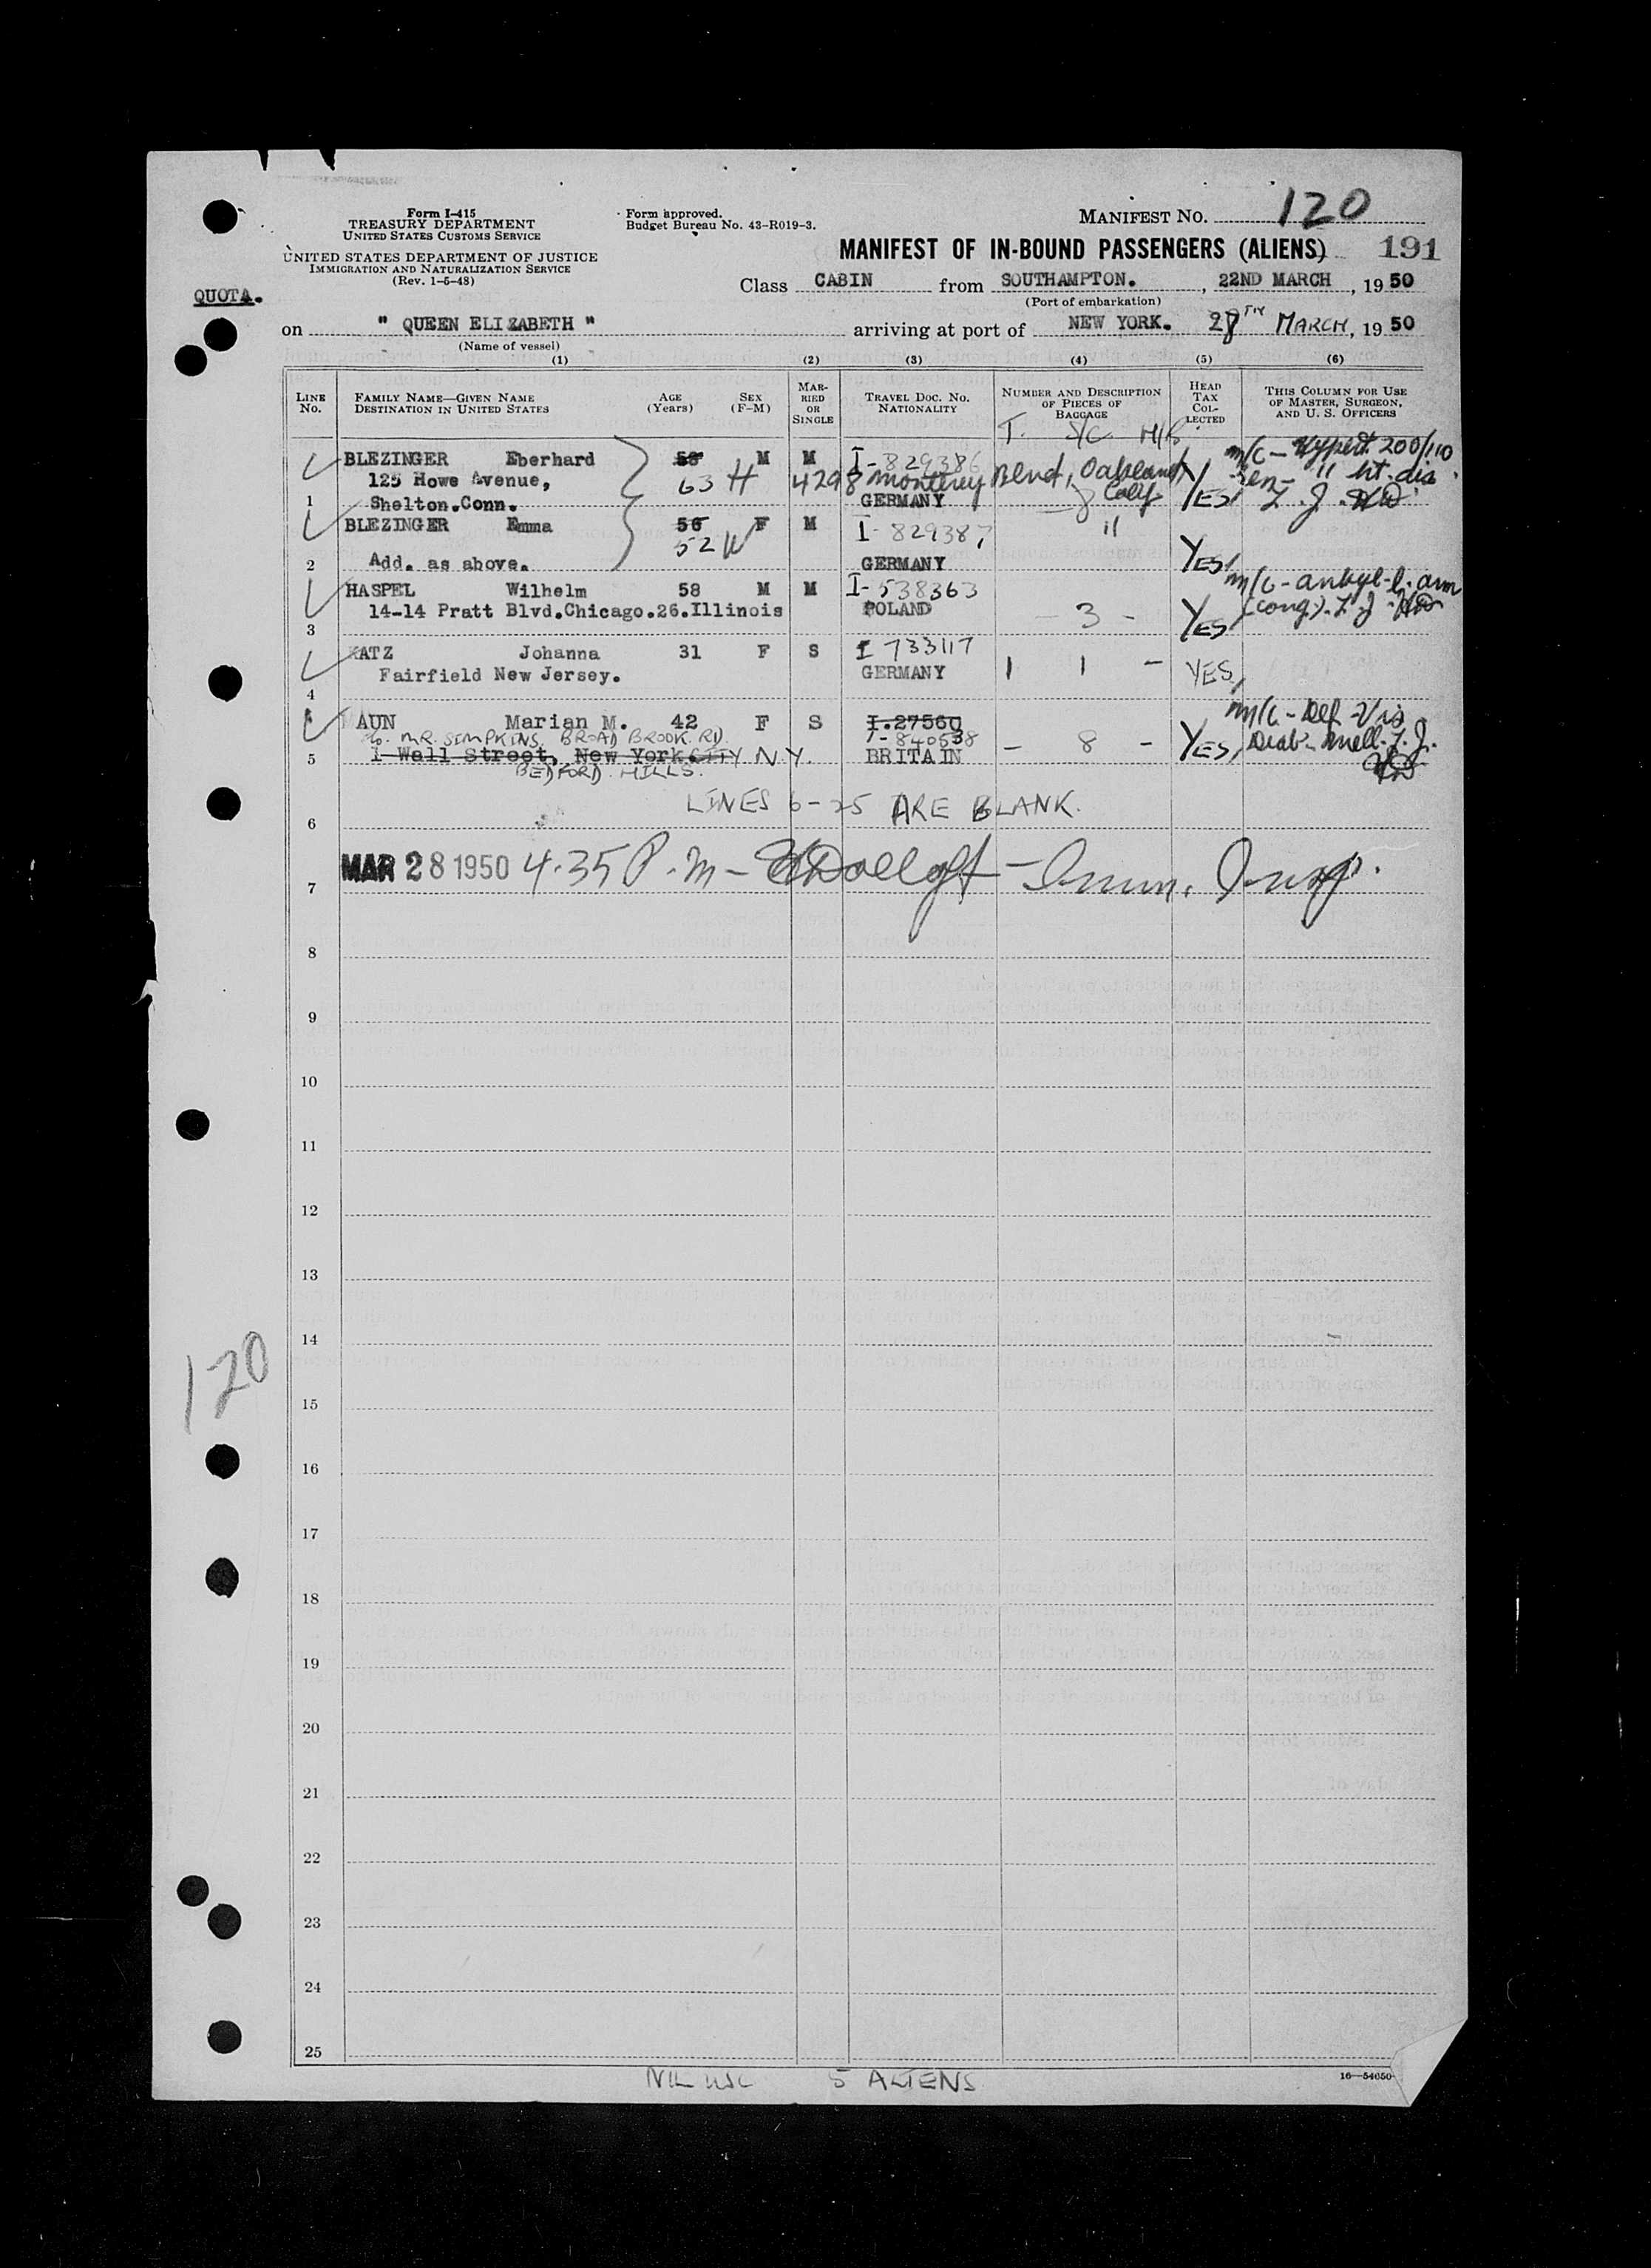 Form I-415
TREASURY DEPARTMENT
UNITED STATES CUSTOMS SERVICE
UNITED STATES DEPARTMENT OF JUSTICE
IMMIGRATION AND NATURALIZATION SERVICE
(Rev. 1-5-48)
Form approved.
Budget Bureau No. 43-R019-3.
MANIFEST NO. 120
MANIFEST OF IN-BOUND PASSENGERS (ALIENS) 191
QUOTA.
Class CABIN from SOUTHAMPTON. , 22ND MARCH , 1950
(Port of embarkation)
on " QUEEN ELIZABETH " arriving at port of NEW YORK. 28TH MARCH, 1950
(Name of vessel)
(1) (2) (3) (4) (5) (6)
LINE NO.
FAMILY NAME—GIVEN NAME
DESTINATION IN UNITED STATES
AGE (Years)
SEX (F-M)
MARRIED OR SINGLE
TRAVEL DOC. NO.
NATIONALITY
NUMBER AND DESCRIPTION OF PIECES OF BAGGAGE
HEAD TAX COLLECTED
THIS COLUMN FOR USE OF MASTER, SURGEON, AND U. S. OFFICERS
T. S/C. H/B.
BLEZINGER Eberhard 58 M M I-829386 m/c - Hypert. 200/110
125 Howe Avenue, 63 H 4298 Monterey Blvd, Oakland Sen- " ht. dis.
1 Shelton.Conn. GERMANY 8 Calif YES
BLEZINGER Emma 56 F M I-829387 "
52 W
2 Add. as above. GERMANY YES
HASPEL Wilhelm 58 M M I-538363 m/c - ankyl - l. arm
14-14 Pratt Blvd.Chicago.26.Illinois POLAND - 3 - YES (cong).
3
KATZ Johanna 31 F S I 733117
Fairfield New Jersey. GERMANY 1 1 - YES
4
AUN Marian M. 42 F S I.27560 m/c - Def. Vis
c/o. MR. SIMPKINS. BROAD BROOK. RD. I-840538
5 1 Wall Street, New York CITY N.Y. BRITAIN - 8 - YES, Diab. mell.
BEDFORD. HILLS.
LINES 6-25 ARE BLANK.
6
7 MAR 28 1950 4.35 P.M - Immn. Insp.
8
9
10
11
12
13
14
15
120
16
17
18
19
20
21
22
23
24
25
NIL USC 5 ALIENS
16—54650